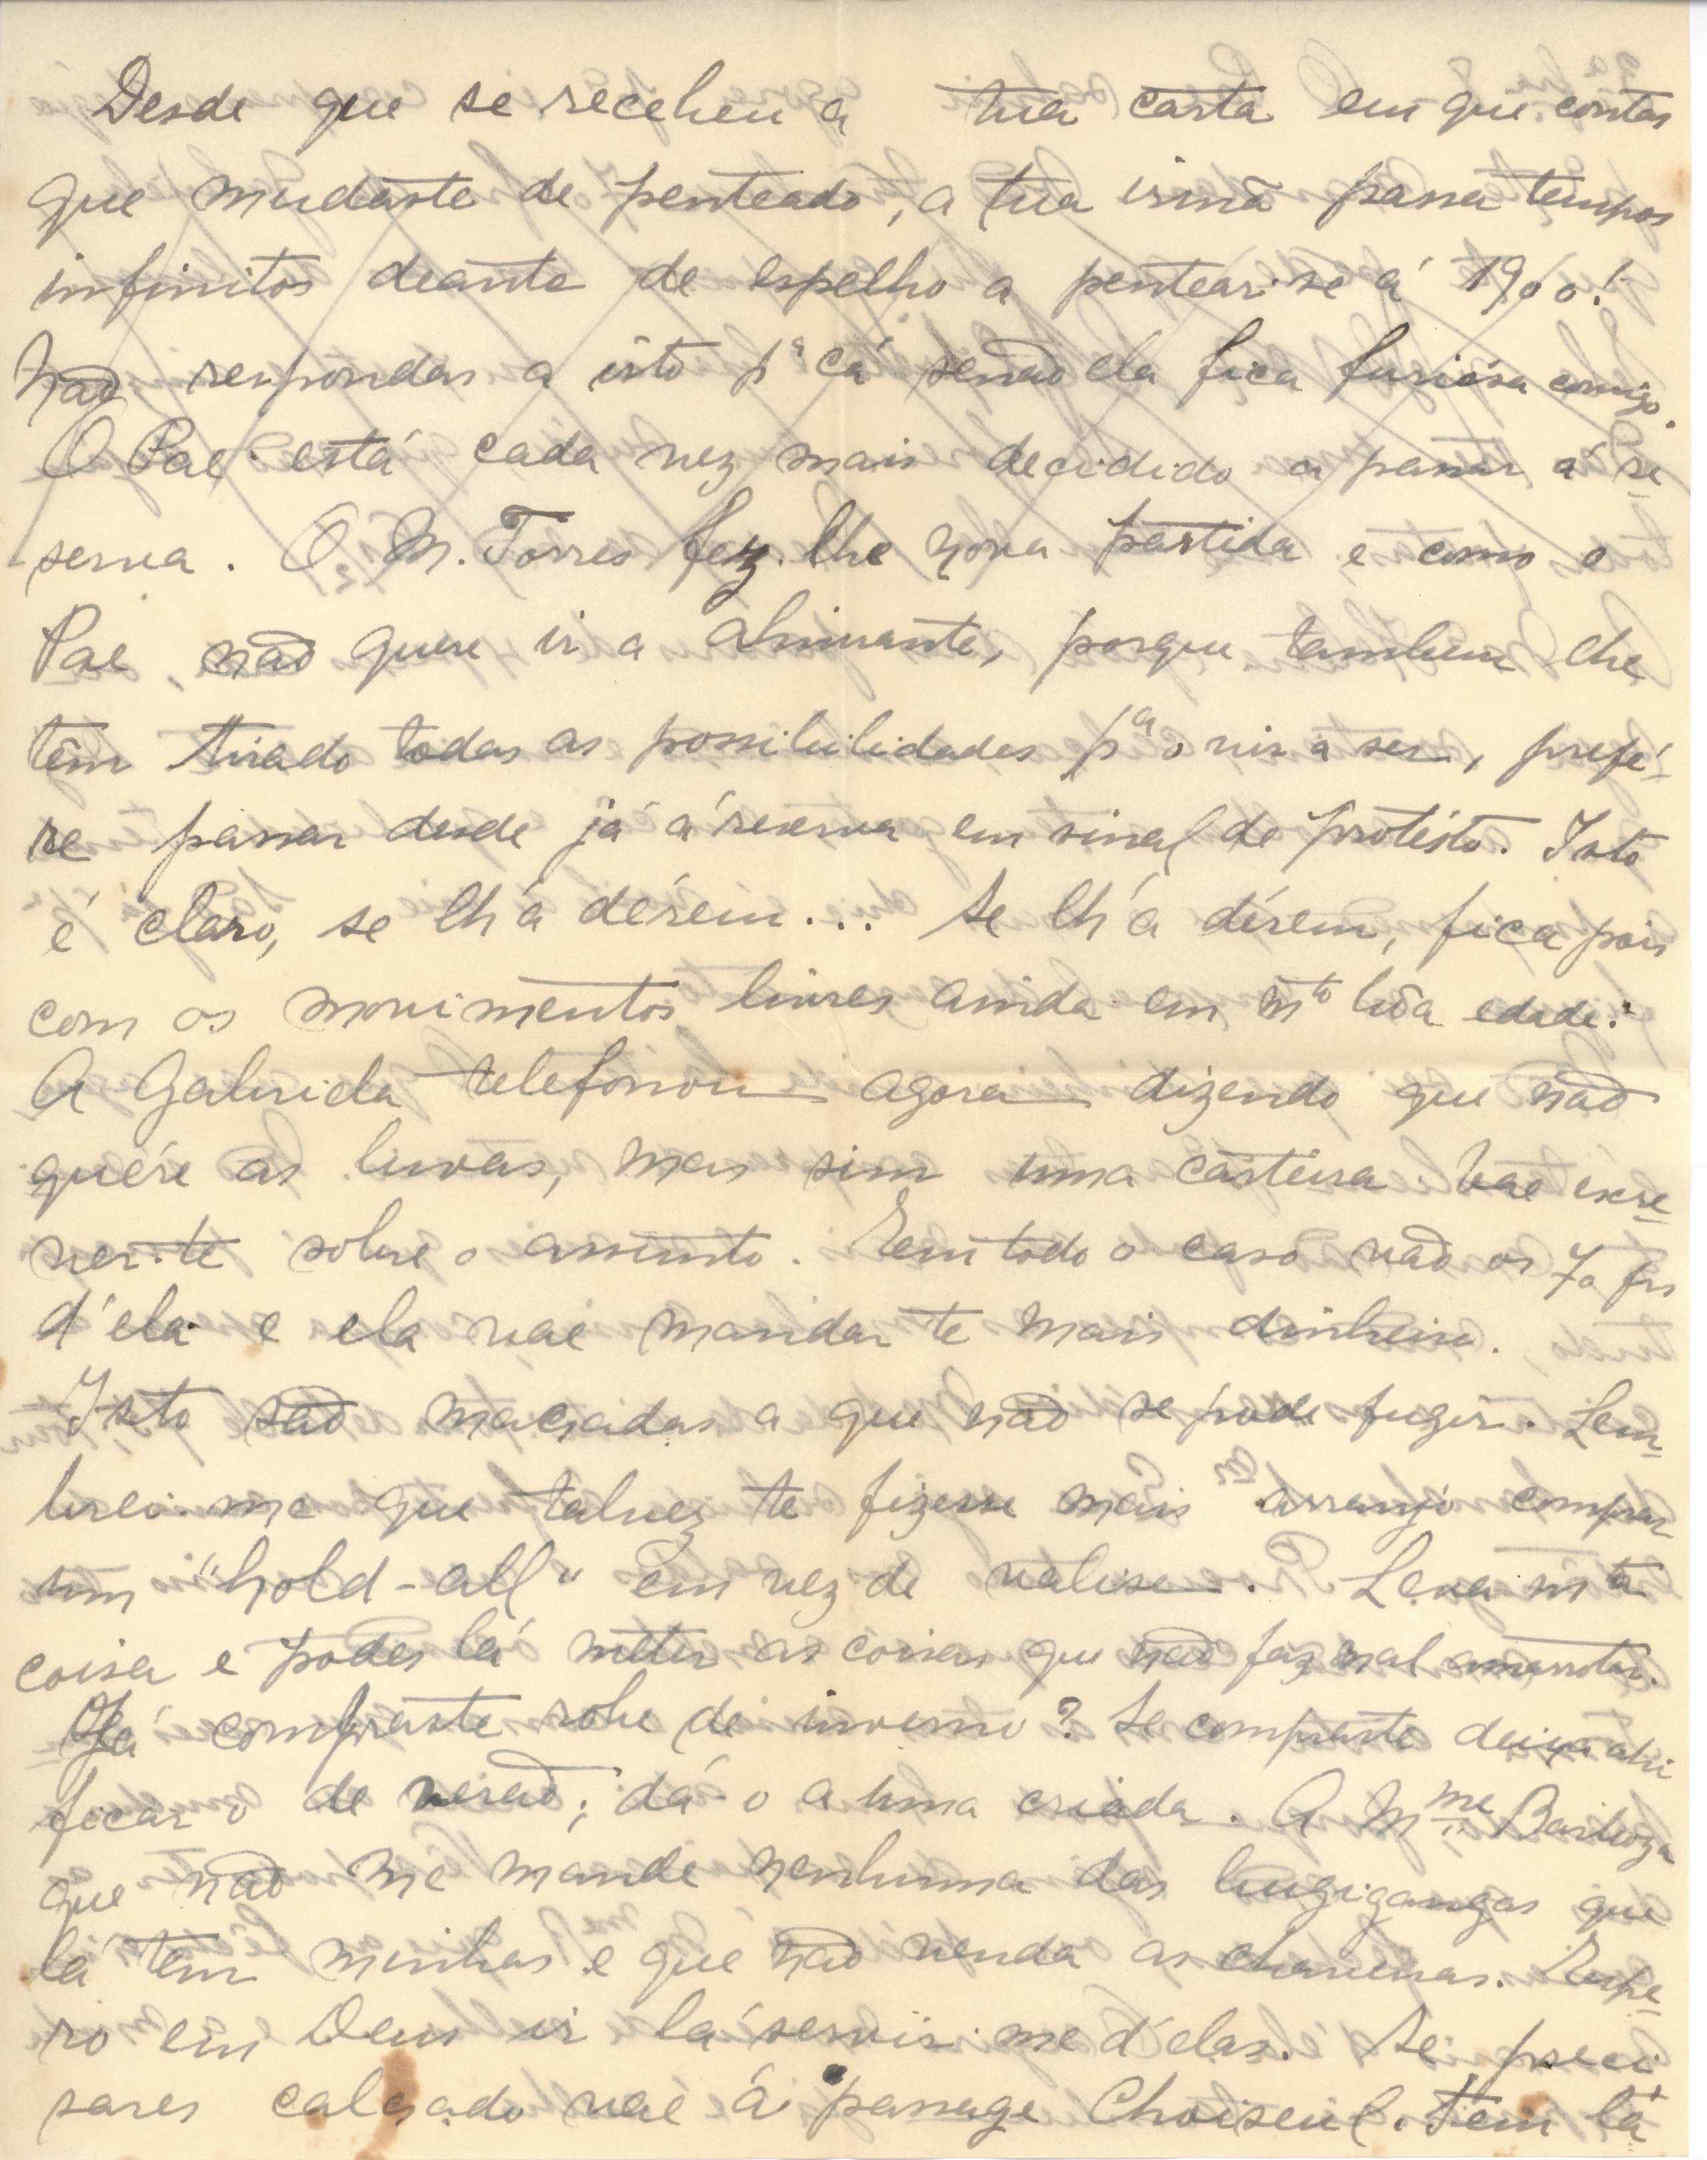 Desde que se recebeu a tua carta em que contas
que mudaste de penteado, a tua irmã passa tempos
infinitos deante do espelho a pentear-se á 1900!
Não respondas a isto pª cá senão ela fica furiósa comigo.
O Pae está cada vez mais decidido a passar á re-
serva. O M. Torres fez-lhe nova partida e como o
Pae não quere ir a almirante, porque tambem lhe
têm tirado todas as possibilidades pª o vir a ser, prefé-
re passar desde já á reserva em sinal de protésto. Isto
é claro, se lh'a dérem... Se lh'a dérem, fica pois
com os movimentos livres ainda em mto bôa edade.
A Gabriela telefonou agora dizendo que não
quére as luvas, mas sim uma carteira. Vae escre-
ver-te sobre o assunto. Em todo o caso vão os 70 frs
d'ela e ela vae mandar te mais dinheiro.
Isto são maçadas a que não se pode fugir. Lem-
brei-me que talvez te fizesse mais arranjo comprar
um "hold-all" em vez de valise. Leva mta
coisa e podes lá meter as coisas que não faz mal amarrotar.
Já compraste robe de inverno? Se compraste deixa ahi
ficar o de verão; dá-o a uma criada. A Mme Barboza
que não me mande nenhuma das bugigangas que
lá tem minhas e que não venda as chavenas. Espe-
ro em Deus ir lá servir-me d'elas. Se preci
sares calçado vae á passage Choiseul. Tem lá